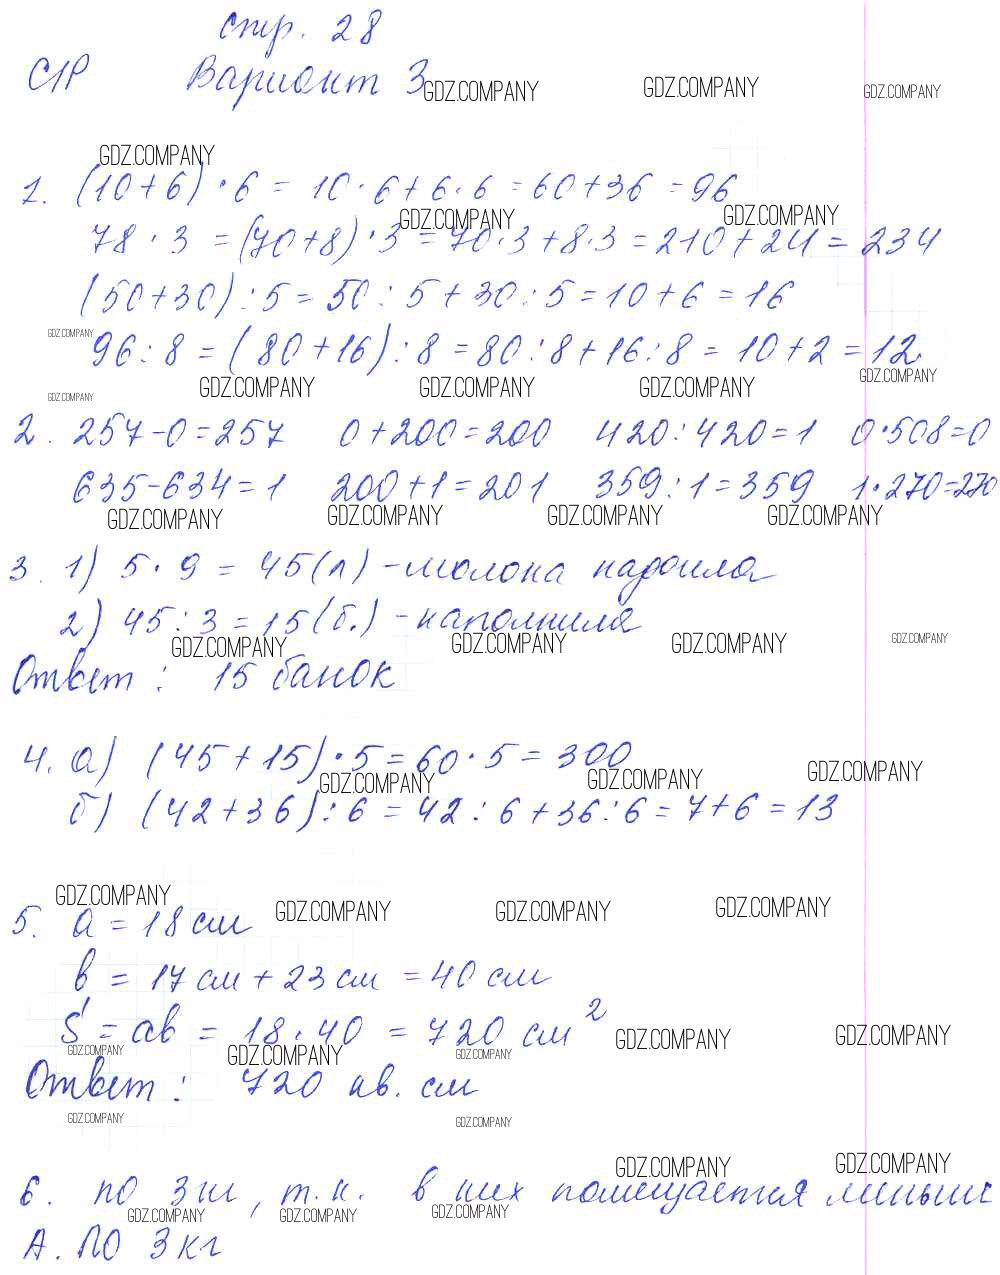 стр. 28
С1Р Вариант 3
GDZ.COMPANY GDZ.COMPANY GDZ.COMPANY
GDZ.COMPANY
1. (10+6)·6=10·6+6·6=60+36=96
GDZ.COMPANY GDZ.COMPANY
78·3=(70+8)·3=70·3+8·3=210+24=234
(50+30):5=50:5+30:5=10+6=16
GDZ.COMPANY
96:8=(80+16):8=80:8+16:8=10+2=12.
GDZ.COMPANY GDZ.COMPANY GDZ.COMPANY GDZ.COMPANY
GDZ.COMPANY
2. 257-0=257 0+200=200 420:420=1 0·508=0
635-634=1 200+1=201 359:1=359 1·270=270
GDZ.COMPANY GDZ.COMPANY GDZ.COMPANY GDZ.COMPANY
3. 1) 5·9=45(л)-молока надоила
2) 45:3=15(б.)-наполнила
GDZ.COMPANY GDZ.COMPANY GDZ.COMPANY GDZ.COMPANY
Ответ: 15 банок
4. а) (45+15)·5=60·5=300
GDZ.COMPANY GDZ.COMPANY GDZ.COMPANY
б) (42+36):6=42:6+36:6=7+6=13
GDZ.COMPANY GDZ.COMPANY GDZ.COMPANY GDZ.COMPANY
5. a=18 см
в=17 см+23 см=40 см
S=ab=18·40=720 см²
GDZ.COMPANY GDZ.COMPANY
GDZ.COMPANY GDZ.COMPANY GDZ.COMPANY
Ответ: 720 кв. см
GDZ.COMPANY GDZ.COMPANY
GDZ.COMPANY GDZ.COMPANY
6. по 3 , т.к. в них помещается меньше
GDZ.COMPANY GDZ.COMPANY GDZ.COMPANY
А. по 3 кг